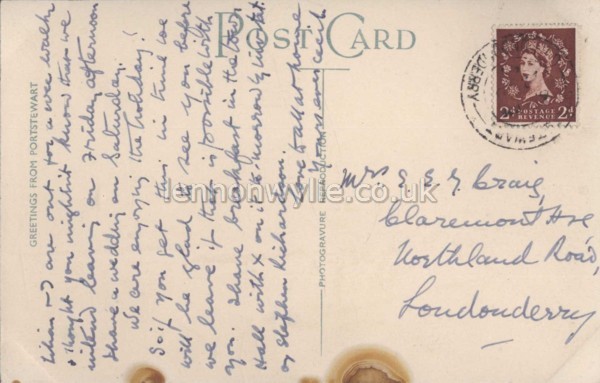 POST CARD
GREETINGS FROM PORTSTEWART
PHOTOGRAVURE REPRODUCTION
and I are out for a wee walk
& thought you might know that we
intend leaving on Friday afternoon
have a wedding on Saturday.
We are enjoying the holiday!
So if you get this in time we
will be glad to see you before
we leave if that is possible with
you. I have breakfast in the Town
Hall with x on it tomorrow
Stephen Richardson
love to all at home
Yours ever
Mrs S. E. G. Craig,
Claremont Hse
Northland Road,
Londonderry
POSTAGE
REVENUE
2d 2d
DERRY
lennonwylie.co.uk